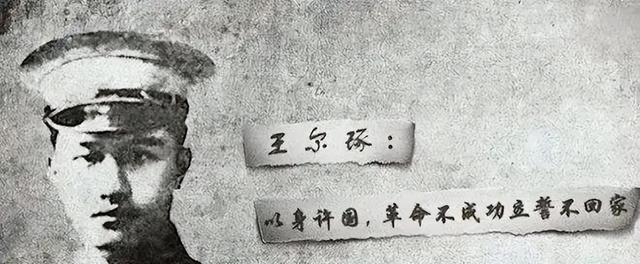 王尔琢：
以身许国，革命不成功立誓不回家